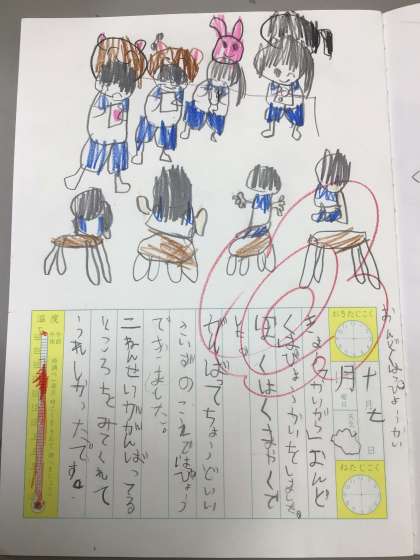 おんどくはっぴょーかい
おきたじこく
十月七日
月
曜日
天気
ねたじこく
きょうかいがら」おんど
くはぴょーかいをしました。
ぼくはくまやくで
した。
がんばてちょーどいい
さいずのこえではぴょう
できました。
二ねんせいががんばってる
ところをみてくれて
うれしかったです。
温度